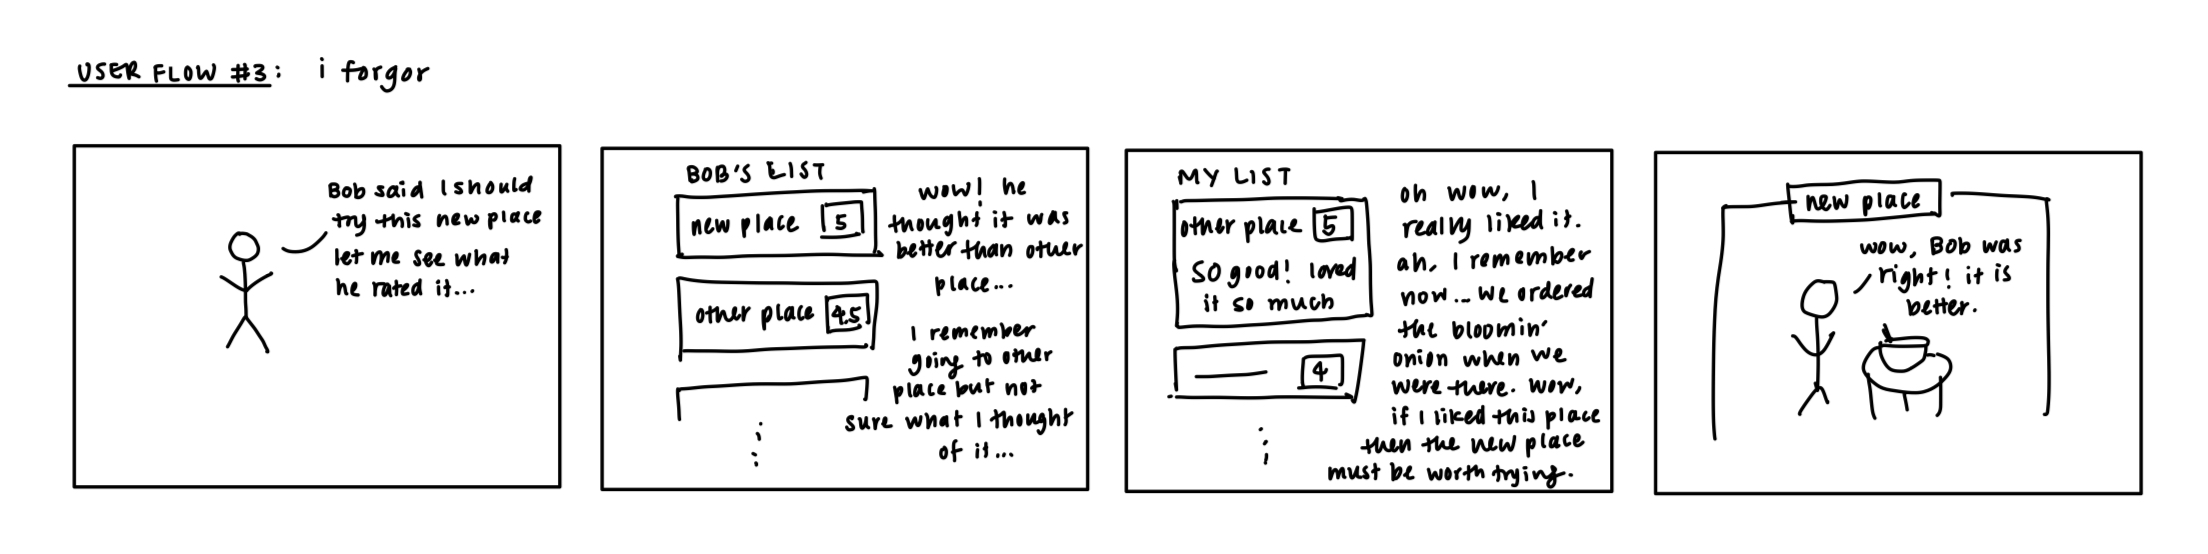 USER FLOW #3: i forgor
Bob said I should
try this new place
let me see what
he rated it...
BOB'S LIST
new place 5
other place 4.5
wow! he
thought it was
better than other
place...
I remember
going to other
place but not
sure what I thought
of it...
MY LIST
other place 5
SO good! loved
it so much
4
oh wow, I
really liked it.
ah, I remember
now... we ordered
the bloomin'
onion when we
were there. wow,
if I liked this place
then the new place
must be worth trying.
new place
wow, Bob was
right! it is
better.